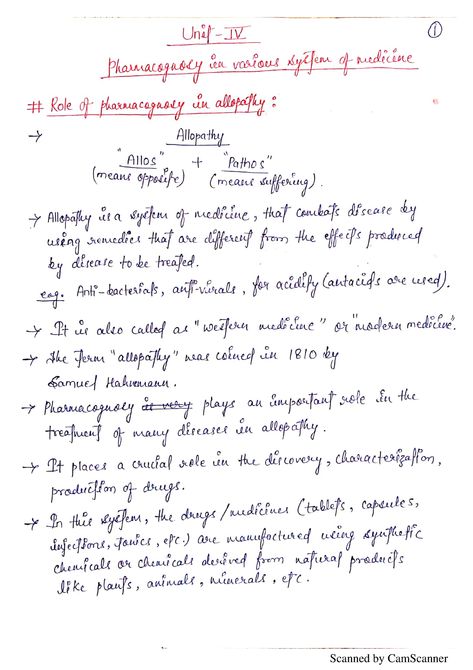 ①
Unit - IV
Pharmacognosy in various system of medicine
# Role of pharmacognosy in allopathy :
→ Allopathy
"Allos" + "Pathos"
(means opposite) (means suffering).
→ Allopathy is a system of medicine, that combats disease by
using remedies that are different from the effects produced
by disease to be treated.
e.g. Anti-bacterials, anti-virals, for acidity (antacids are used).
→ It is also called as "western medicine" or "modern medicine".
→ The term "allopathy" was coined in 1810 by
Samuel Hahnemann.
→ Pharmacognosy is very plays an important role in the
treatment of many diseases in allopathy.
→ It places a crucial role in the discovery, characterization,
production of drugs.
→ In this system, the drugs/medicines (tablets, capsules,
injections, tonics, etc.) are manufactured using synthetic
chemicals or chemicals derived from natural products
like plants, animals, minerals, etc.
Scanned by CamScanner